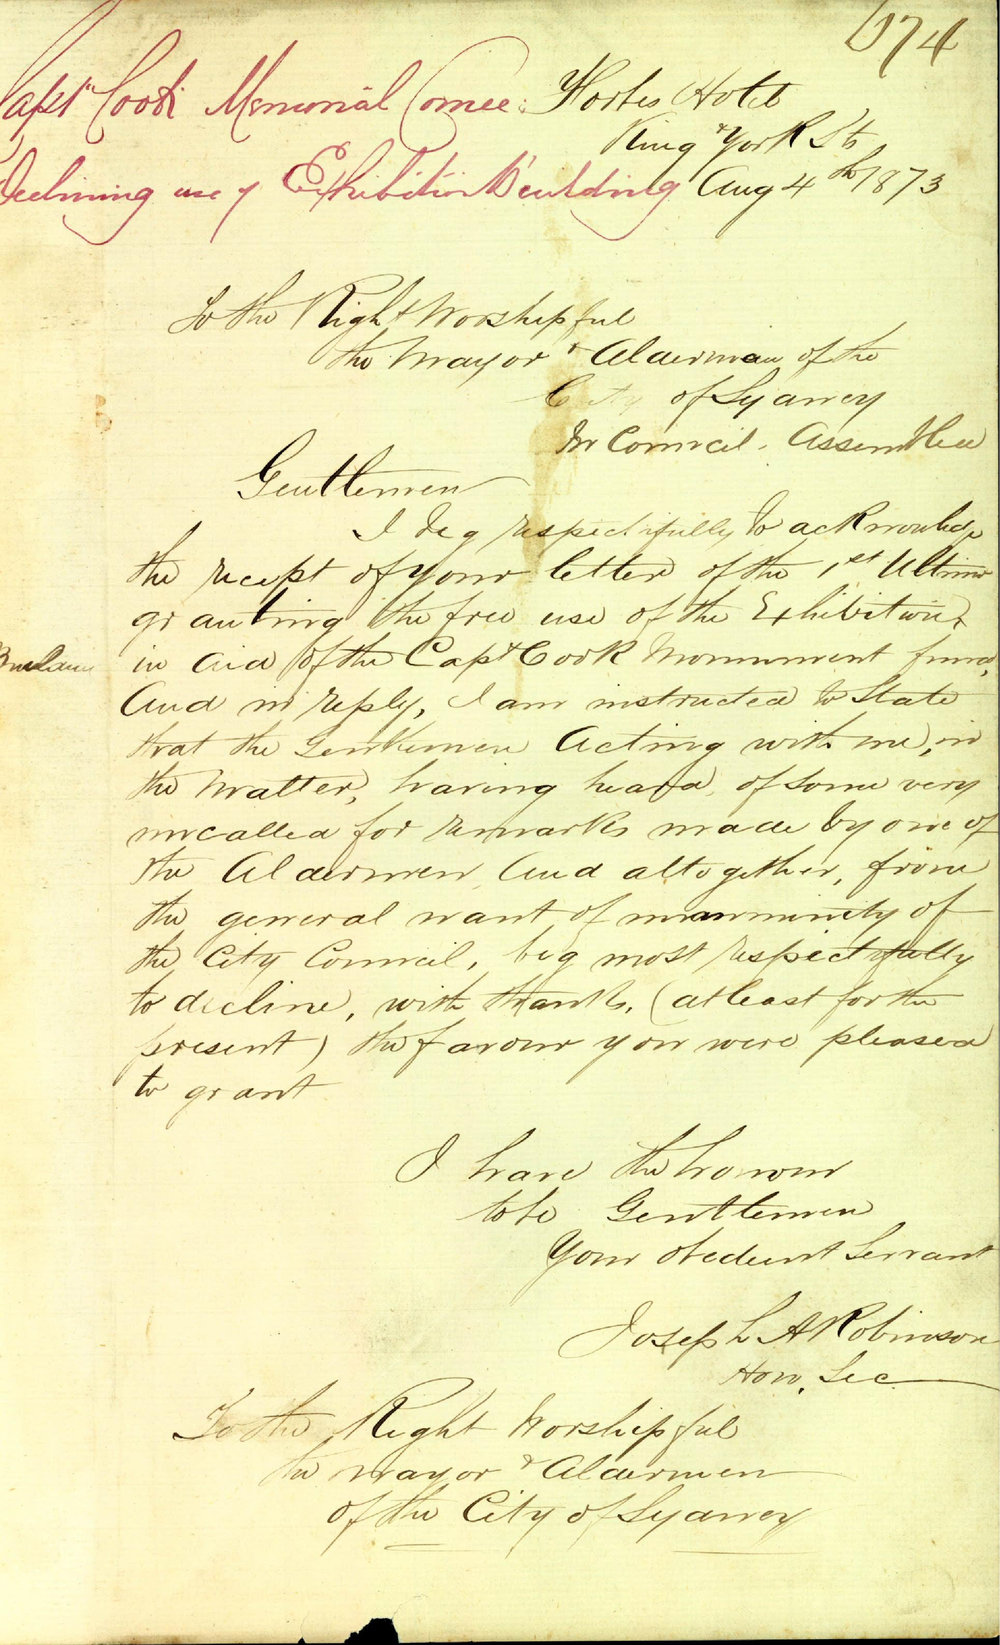 674
Capt Cook Memorial Comee:
Declining use of Exhibition Building
Forbes Hotel
King & York Sts
Aug 4th 1873
To the Right Worshipful
the Mayor & Alderman of the
City of Sydney
In Council Assembled
Gentlemen
I beg respectifully to acknowledge
the receipt of your letter of the 1st Ultimo
granting the free use of the Exhibition
Building
in aid of the Capt Cook Monument fund,
And in reply, I am instructed to State
that the Gentlemen Acting with me, in
the Matter, having heard, of some very
uncalled for remarks made by one of
the Aldermen, And altogether, from
the general want of unanminity of
the City Council, beg most respectfully
to decline, with thanks, (at least for the
present) the favour you were pleased
to grant
I have the honour
to be Gentlemen
Your obedient Servant
Joseph A Robinson
Hon. Sec
To the Right Worshipful
the Mayor & Aldermen
of the City of Sydney